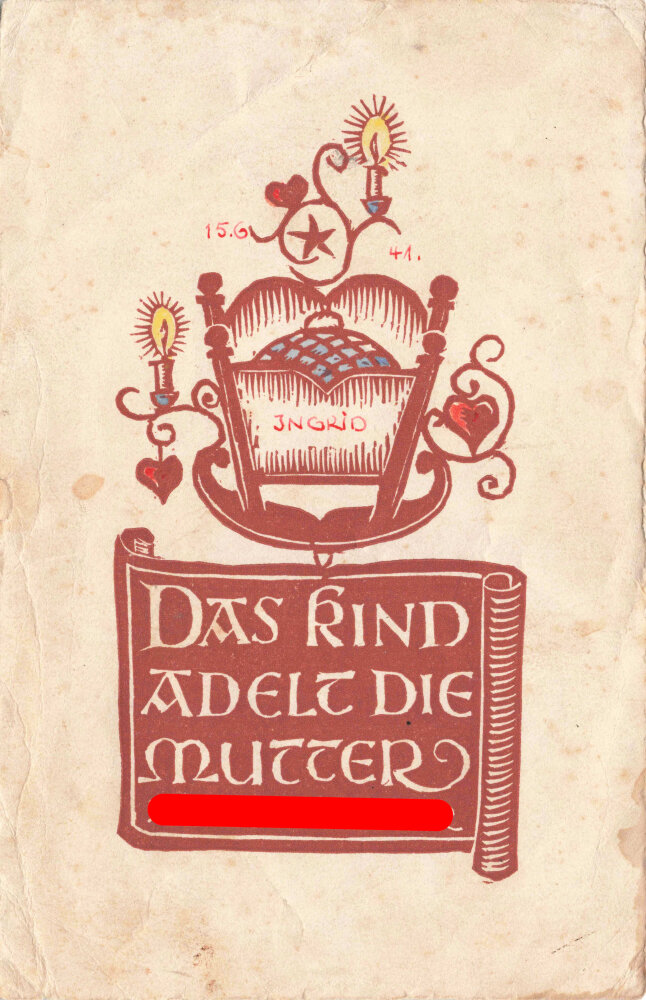 15.6
41.
INGRID
DAS KIND
ADELT DIE
MUTTER